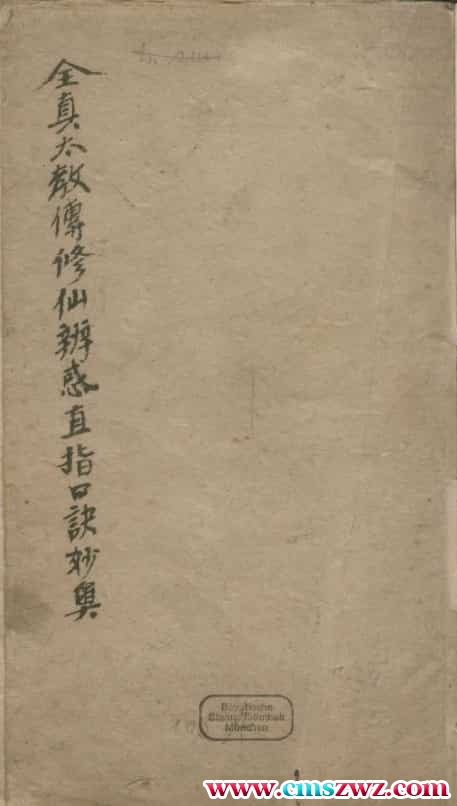 全真太教傳修仙辨惑直指口訣妙奧
Bayerische
Staatsbibliothek
München
www.cmszwz.com